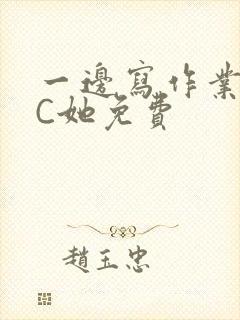 一邊寫作業
C她免費
趙玉忠